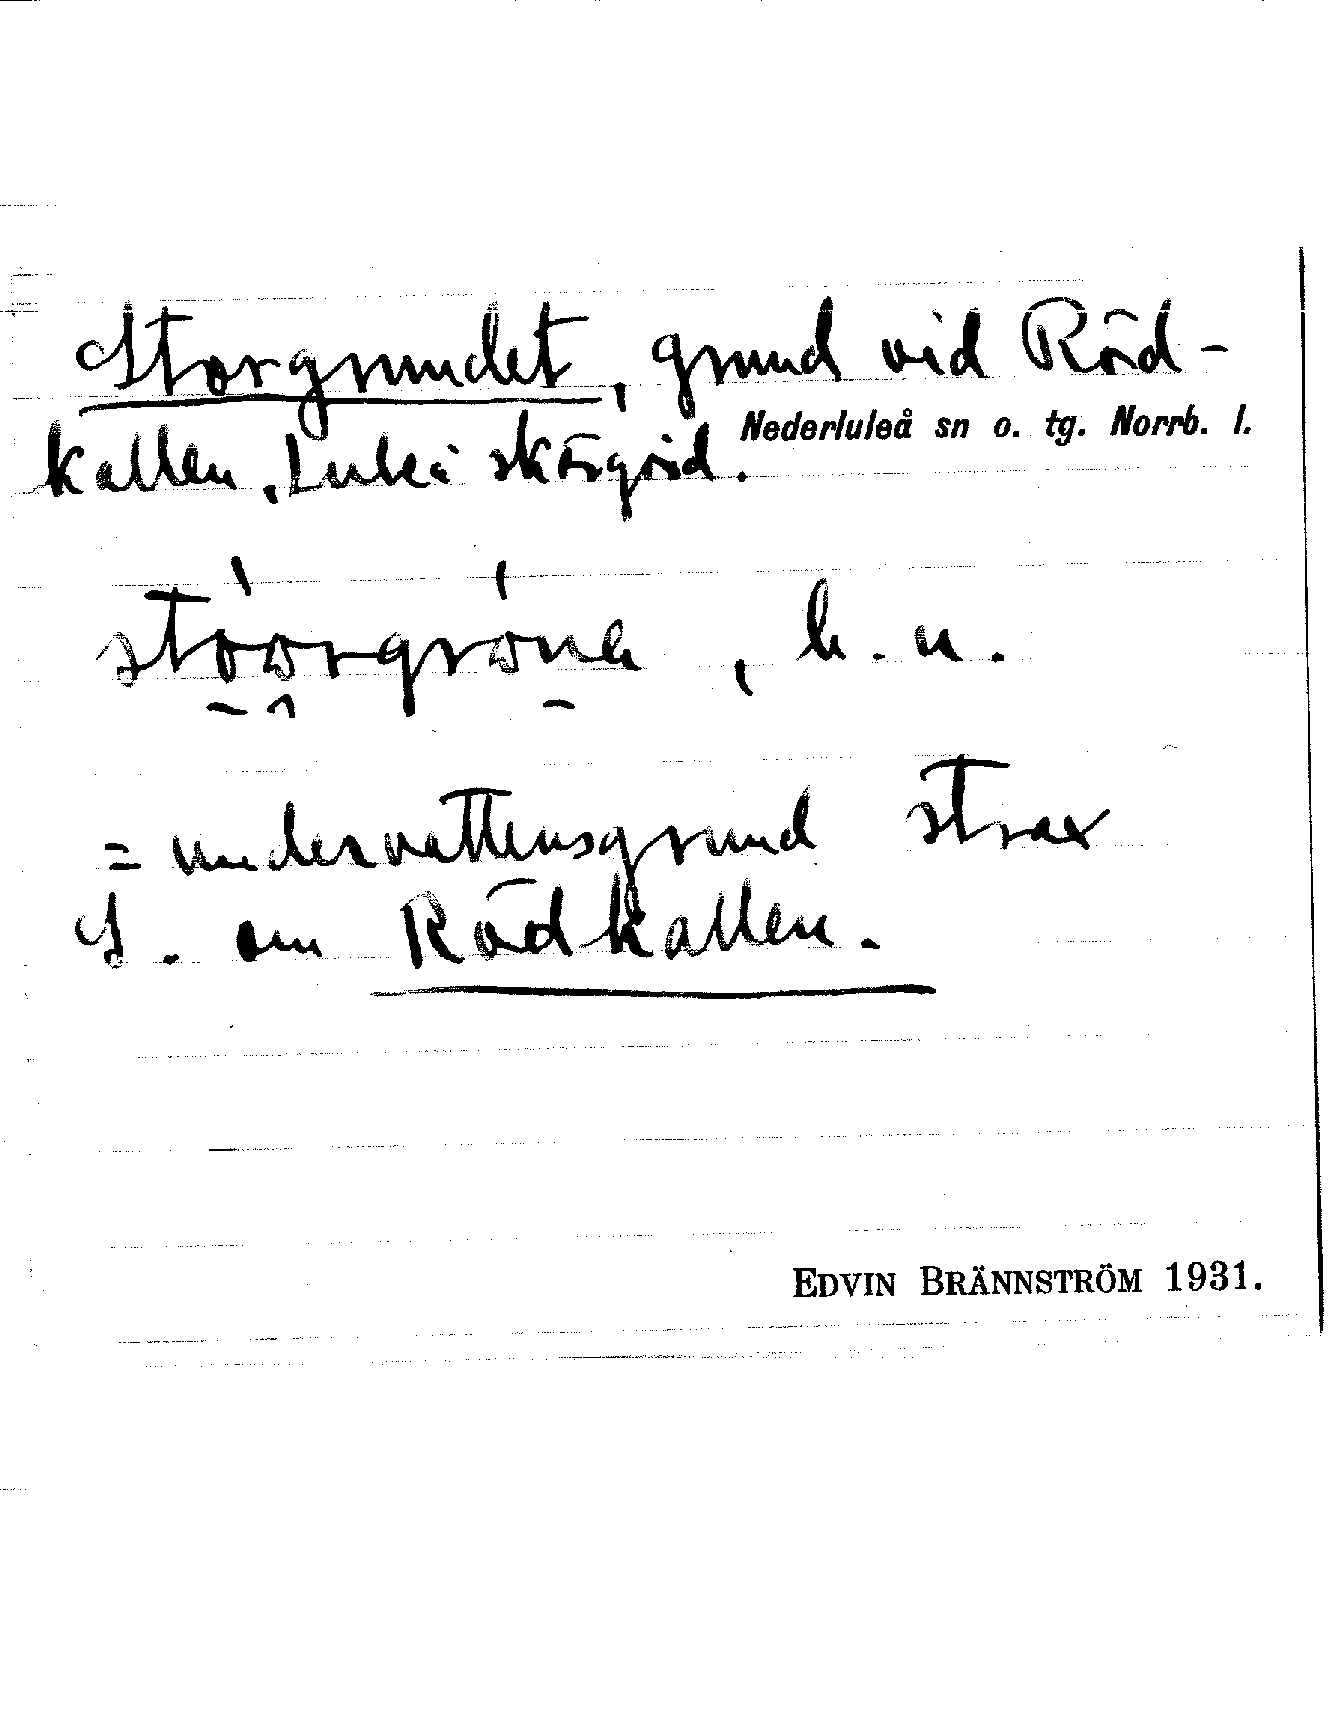 Storgrundet, grund vid Röd-
kallen, Luleå skärgård.
Nederluleå sn o. tg. Norrb. l.
, b. n.
= undervattensgrund strax
S. om Rödkallen.
EDVIN BRÄNNSTRÖM 1931.